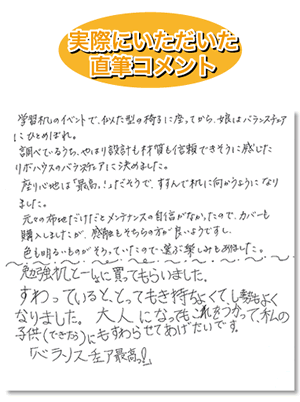 実際にいただいた
直筆コメント
学習机のイベントで、似た型の椅子に座ってから、娘はバランスチェア
にひとめぼれ。
調べているうち、やはり設計も材質も信頼できそうに感じた
リボハウスのバランスチェアに決めました。
座り心地は「最高。!」だそうで、すすんで机に向かうようになり
ました。
元々の布地だけだとメンテナンスの自信がなかったので、カバーも
購入しましたが、感触もそちらの方が良いようですし、
色も明るいものがそろっていたので選ぶ楽しみも
勉強机と一しょに買ってもらいました。
すわっていると、とってもき持ちよくて、しせいもよく
なりました。大人になってもこれをつかって、私の
子供(できたら)にもすわらせてあげたいです。
「バランスチェア最高っ!」